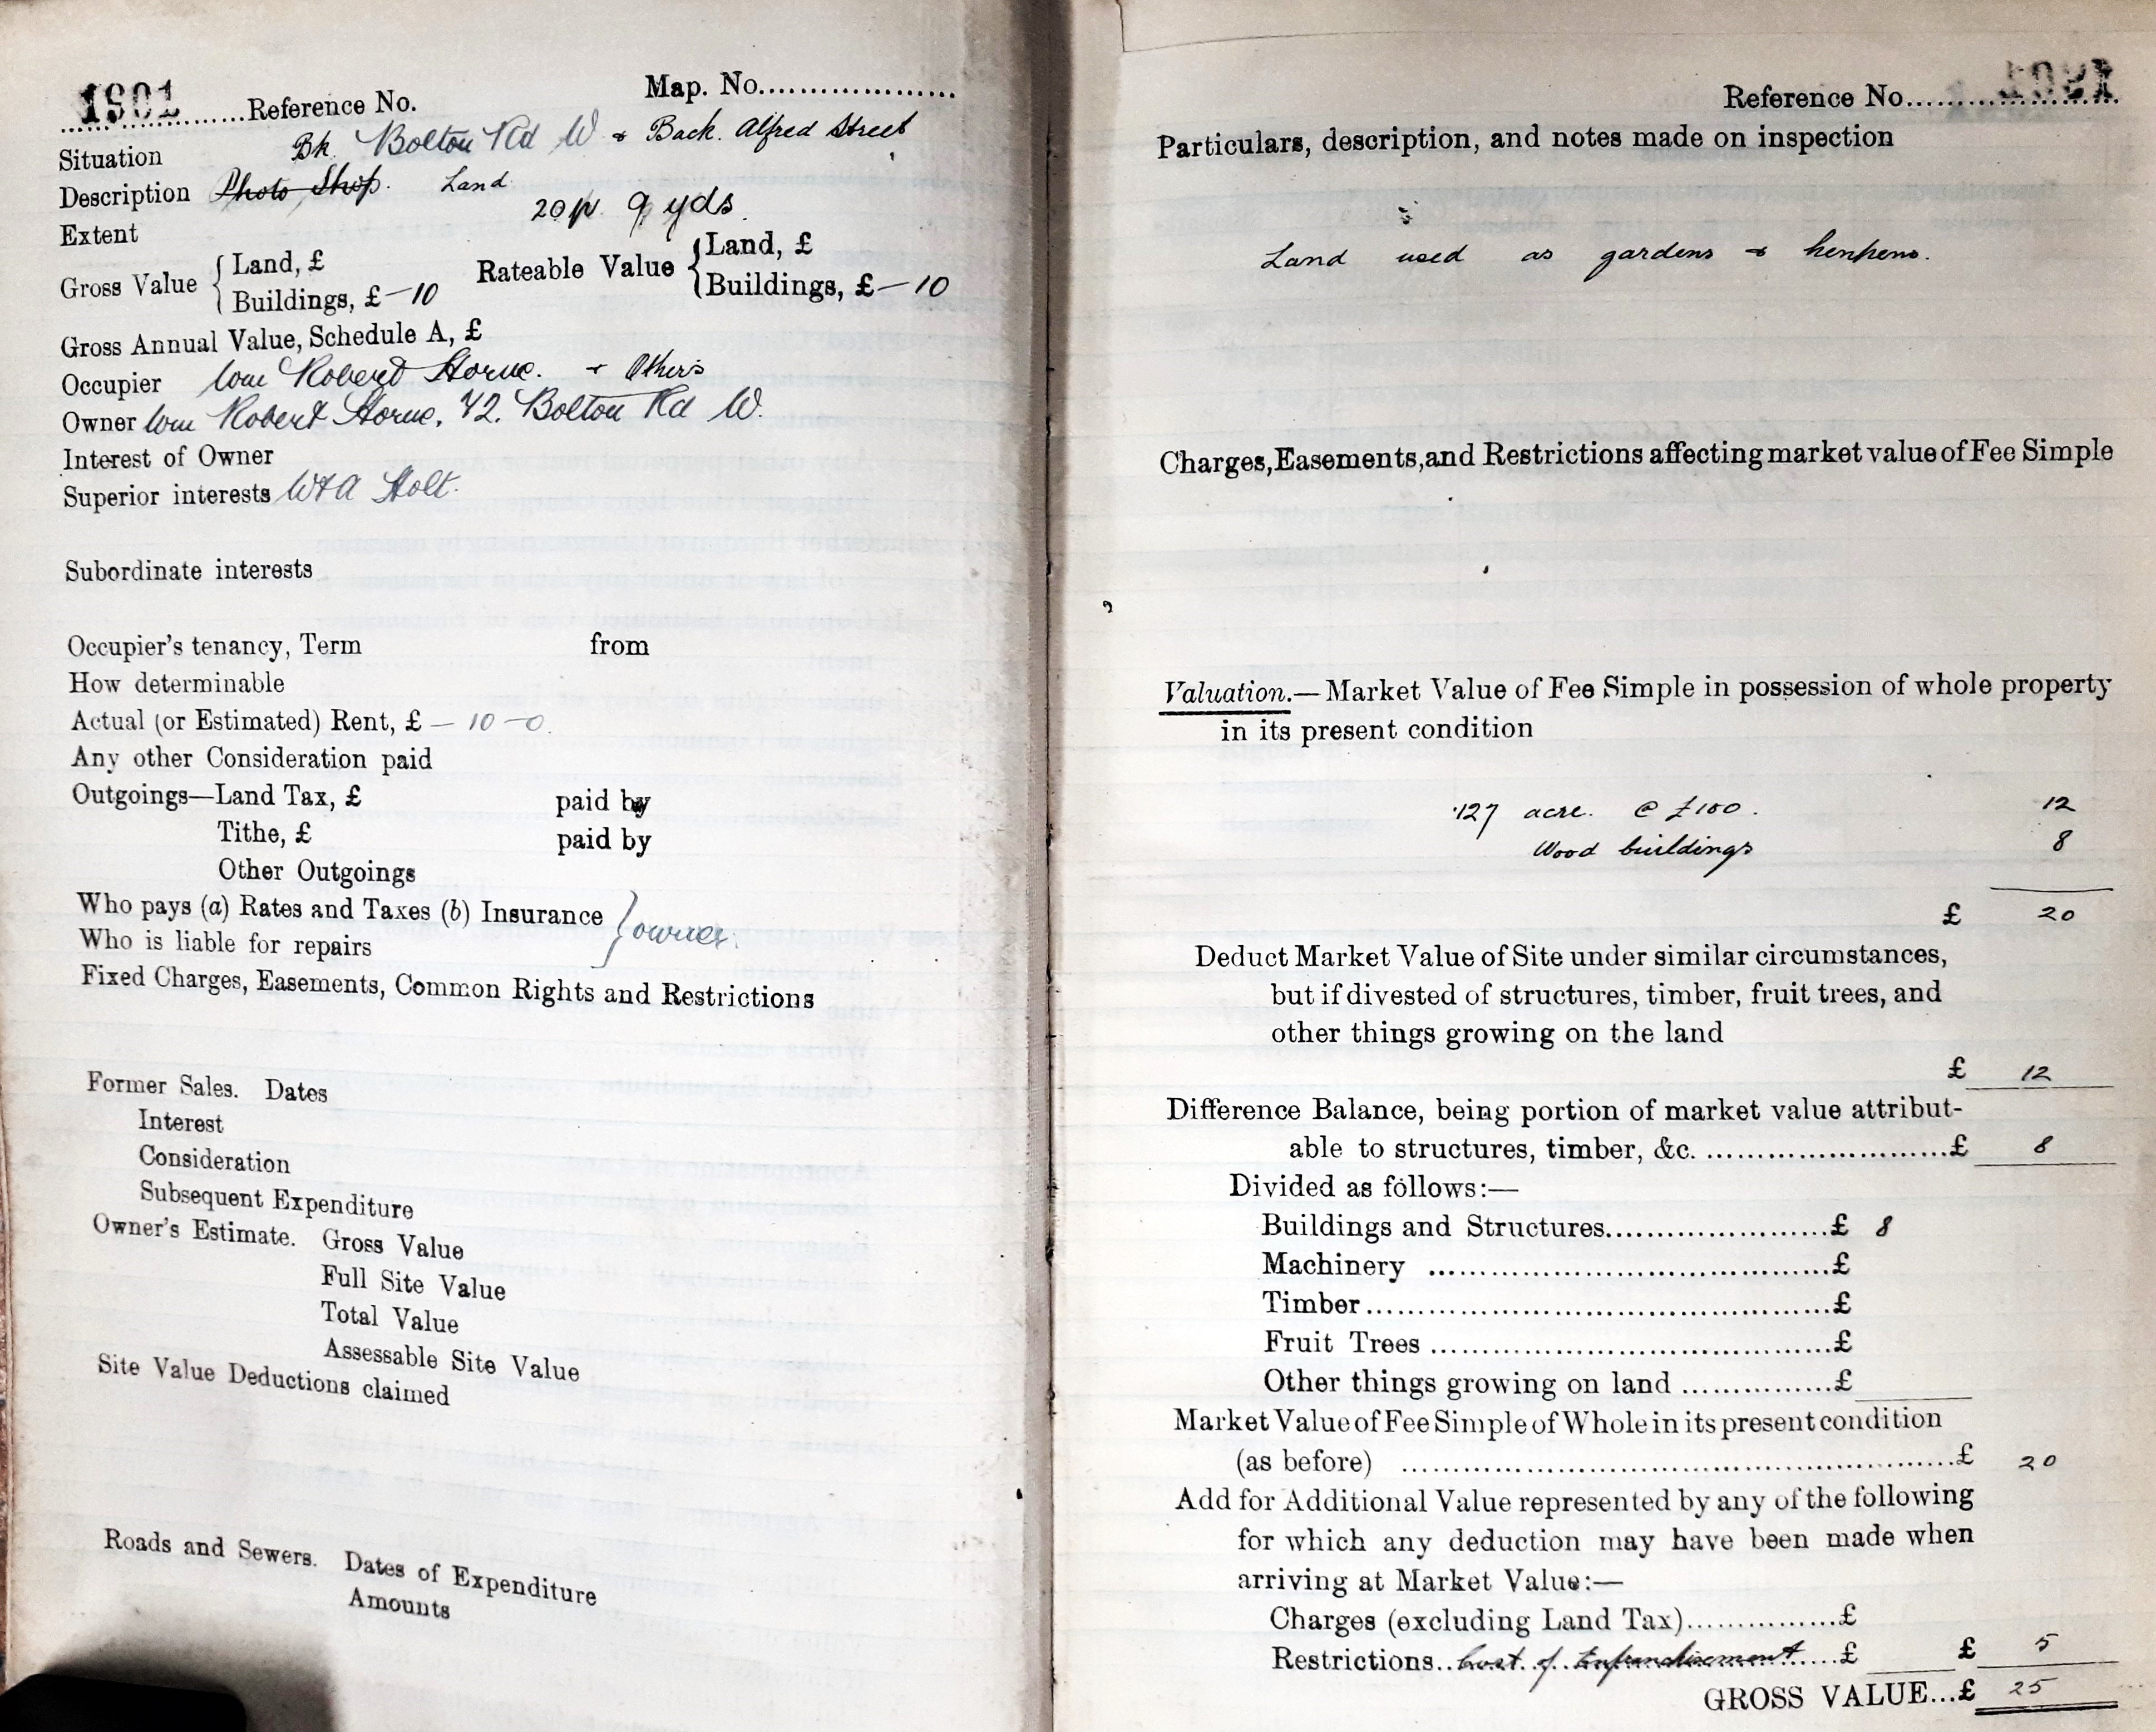 1901 Reference No. Map. No.
Situation Bk. Bolton Rd W & Back. Alfred Street
Description Photo Shop. Land
Extent 20p. 9 yds.
Gross Value { Land, £ Rateable Value { Land, £
Buildings, £ –10 Buildings, £ –10
Gross Annual Value, Schedule A, £
Occupier Wm Robert Horne. & Others
Owner Wm Robert Horne, 42. Bolton Rd W.
Interest of Owner
Superior interests W & A Holt.
Subordinate interests
Occupier's tenancy, Term from
How determinable
Actual (or Estimated) Rent, £ – 10 – 0.
Any other Consideration paid
Outgoings—Land Tax, £ paid by
Tithe, £ paid by
Other Outgoings
Who pays (a) Rates and Taxes (b) Insurance } owner.
Who is liable for repairs
Fixed Charges, Easements, Common Rights and Restrictions
Former Sales. Dates
Interest
Consideration
Subsequent Expenditure
Owner's Estimate. Gross Value
Full Site Value
Total Value
Assessable Site Value
Site Value Deductions claimed
Roads and Sewers. Dates of Expenditure
Amounts
Reference No. 1901
Particulars, description, and notes made on inspection
Land used as gardens & henpens.
Charges, Easements, and Restrictions affecting market value of Fee Simple
Valuation.—Market Value of Fee Simple in possession of whole property
in its present condition
·127 acre. @ £100. 12
Wood buildings 8
£ 20
Deduct Market Value of Site under similar circumstances,
but if divested of structures, timber, fruit trees, and
other things growing on the land
£ 12
Difference Balance, being portion of market value attribut-
able to structures, timber, &c. £ 8
Divided as follows:—
Buildings and Structures £ 8
Machinery £
Timber £
Fruit Trees £
Other things growing on land £
Market Value of Fee Simple of Whole in its present condition
(as before) £ 20
Add for Additional Value represented by any of the following
for which any deduction may have been made when
arriving at Market Value:—
Charges (excluding Land Tax) £
Restrictions Cost of Enfranchisement £ £ 5
GROSS VALUE...£ 25